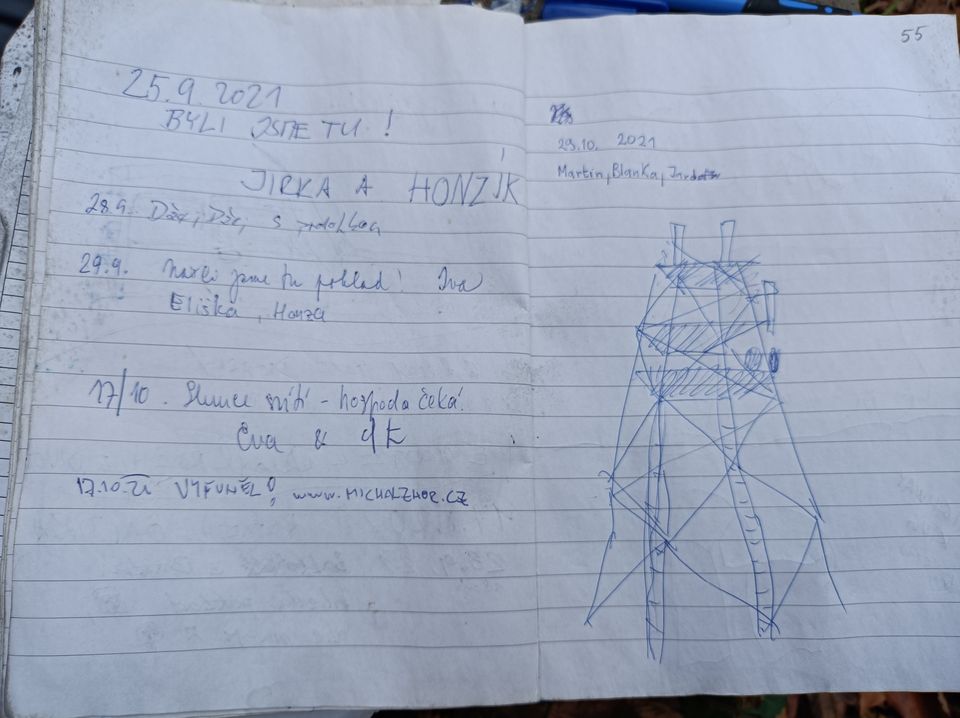 25.9.2021
BYLI JSME TU !
JIRKA A HONZÍK
28.9. Déšť, Déšť, s
29.9. Našli jsme tu poklad! Iva
Eliška, Honza
17/10. Slunce svítí - hospoda čeká!
Eva &
17.10.21 VYFUNĚL! www.MICHALZHOR.CZ
55
23.10. 2021
Martin, Blanka,